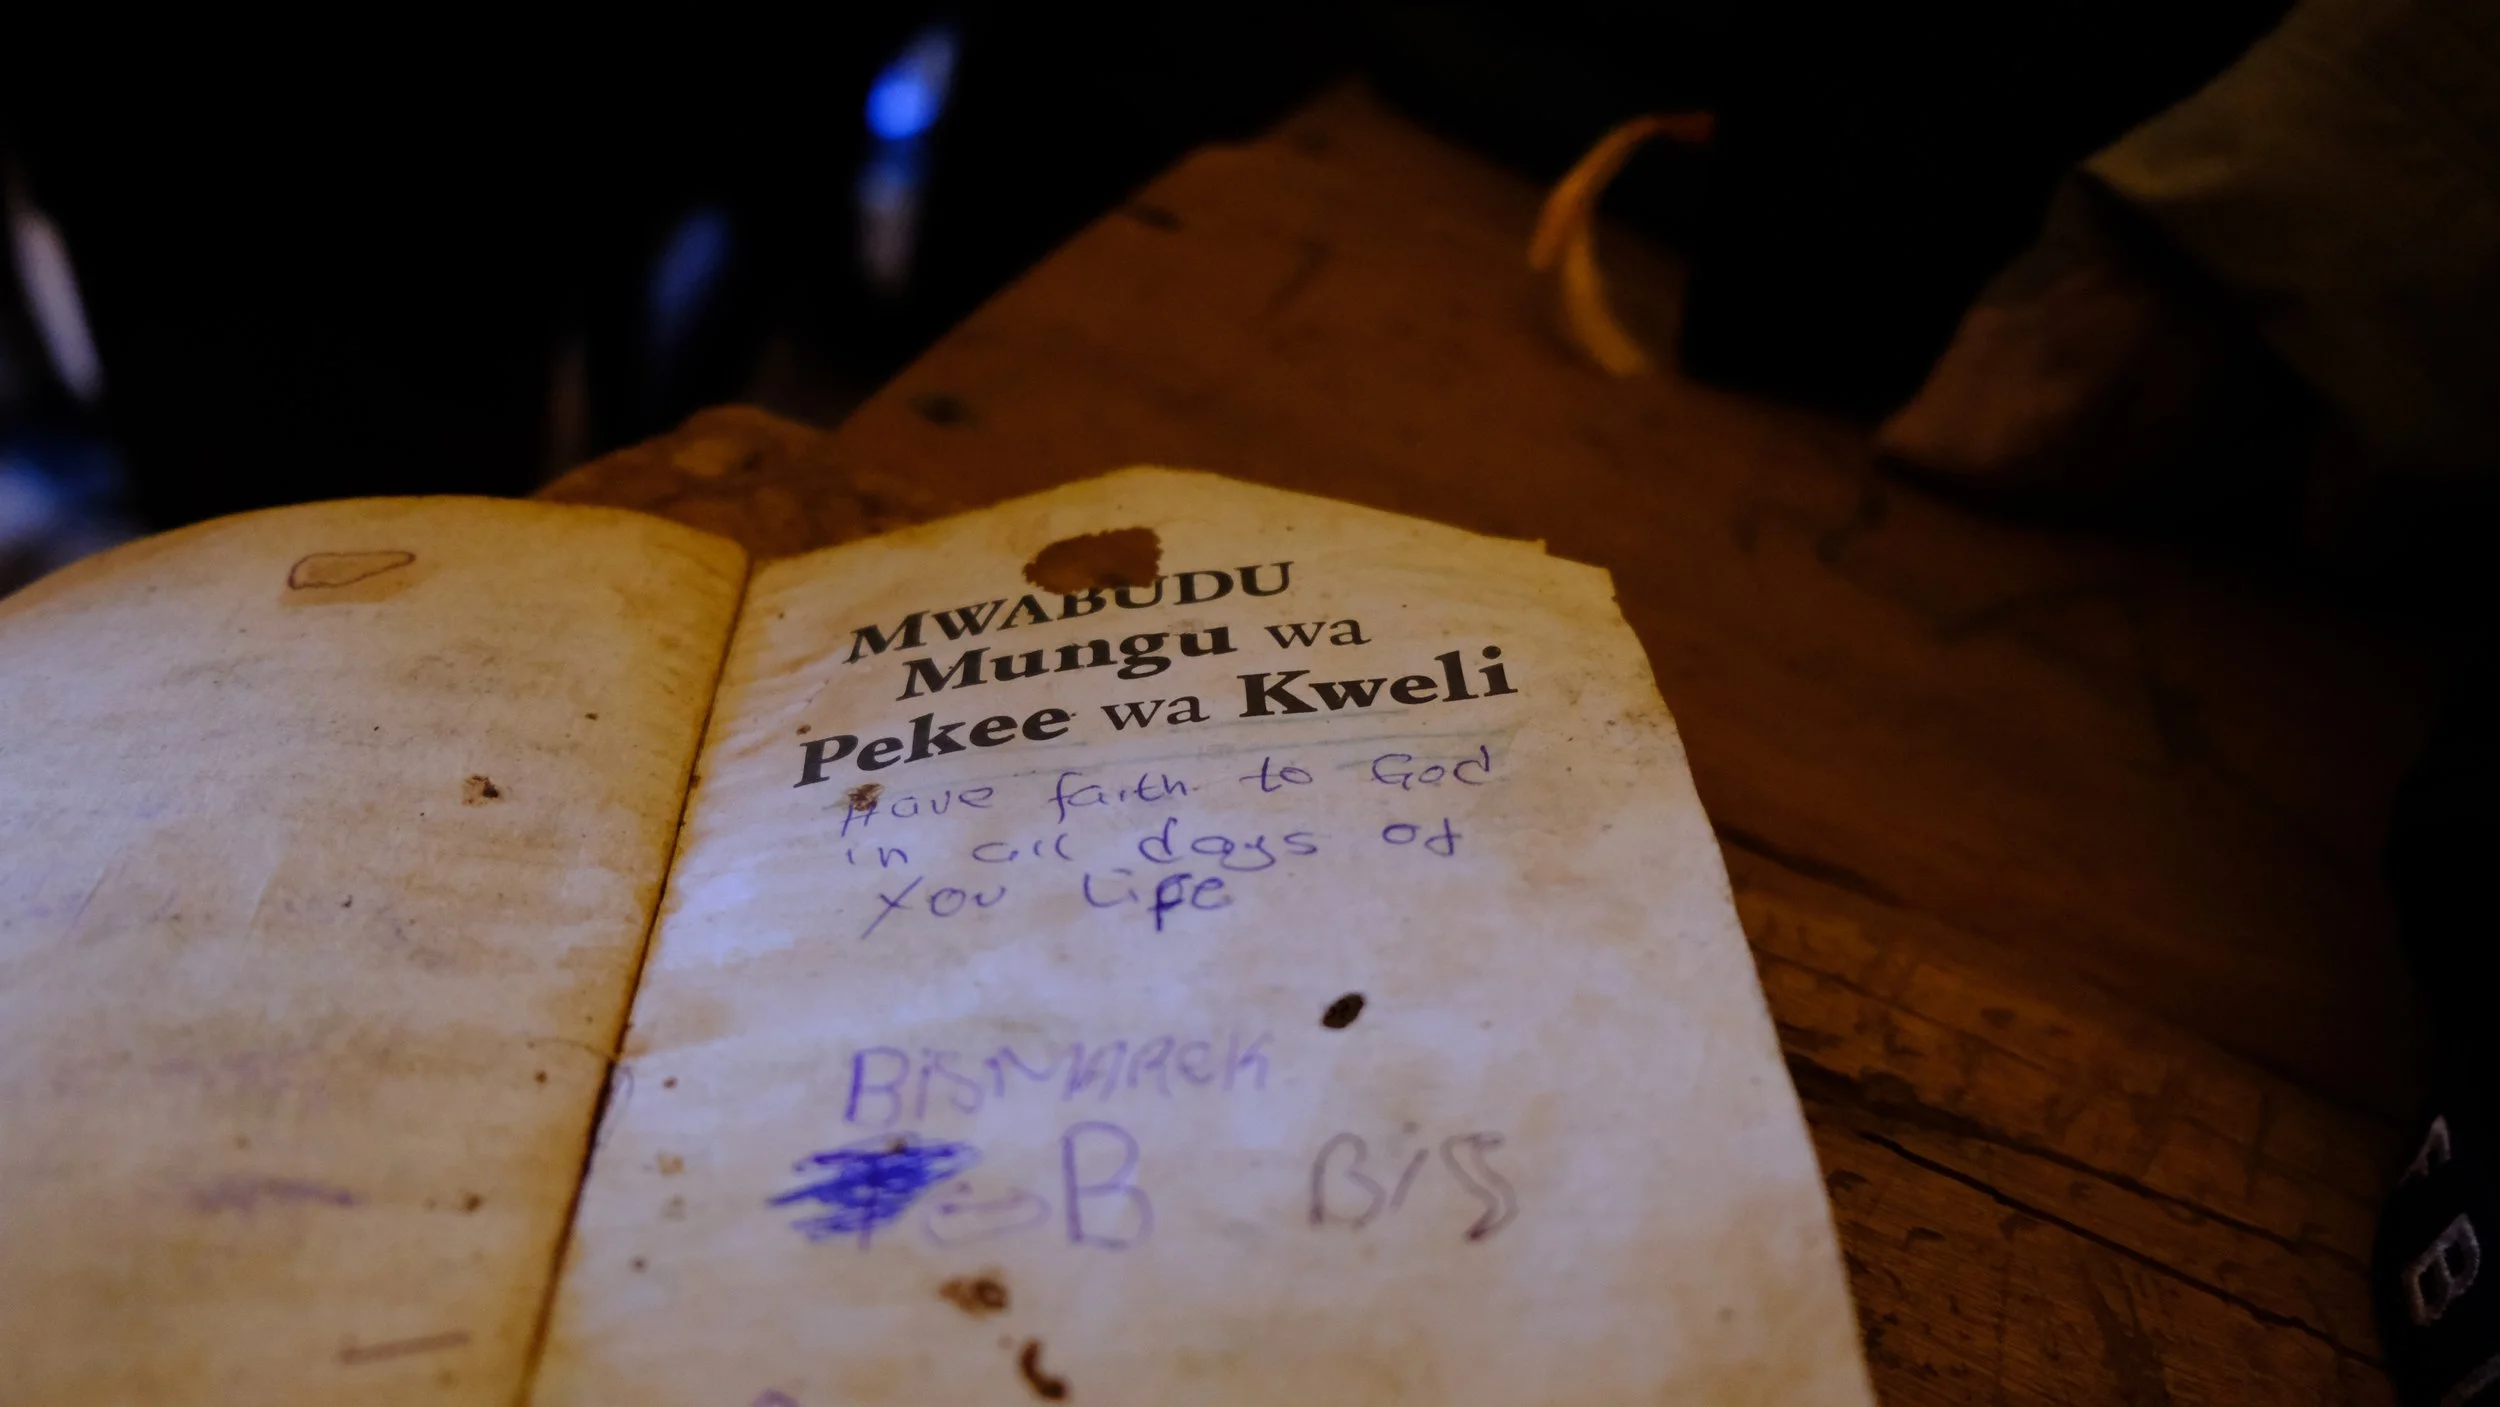 MWABUDU
Mungu wa
Pekee wa Kweli
Have faith to God
in all days of
you Life
BiSMARCK
B Bis